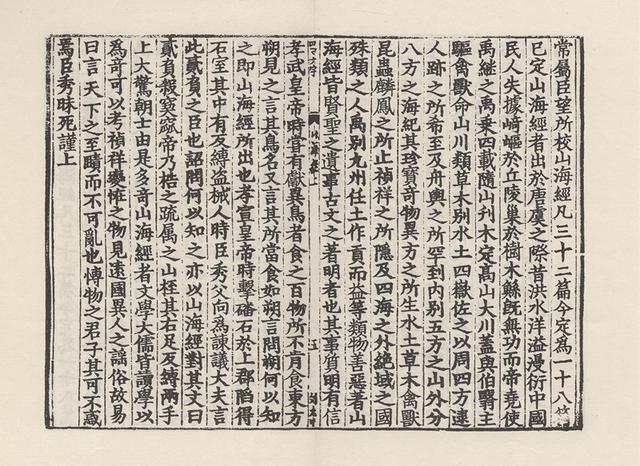 常屬臣望所校山海經凡三十二篇今定爲一十八篇
已定山海經者出於唐虞之際昔洪水洋溢漫衍中國
民人失據崎嶇於丘陵巢於樹木鯀旣無功而帝堯使
禹繼之禹乘四載隨山刋木定高山大川蓋與伯翳主
驅禽獸命山川類草木别水土四嶽佐之以周四方逮
人跡之所希至及舟輿之所罕到内别五方之山外分
八方之海紀其珍寶奇物異方之所生水土草木禽獸
昆蟲麟鳳之所止禎祥之所隱及四海之外絶域之國
殊類之人禹别九州任土作貢而益等類物善惡著山
海經皆賢聖之遺事古文之著明者也其事質明有信
五
孝武皇帝時嘗有獻異鳥者食之百物所不肯食東方
朔見之言其鳥名又言其所當食如朔言問朔何以知
之即山海經所出也孝宣皇帝時擊磻石於上郡陷得
石室其中有反縛盜械人時臣秀父向爲諫議大夫言
此貳負之臣也詔問何以知之亦以山海經對其文曰
貳負殺窫窳帝乃梏之疏属之山桎其右足反縛兩手
上大驚朝士由是多奇山海經者文學大儒皆讀學以
爲奇可以考禎祥變恠之物見遠國異人之謡俗故易
曰言天下之至賾而不可亂也愽物之君子其可不惑
焉臣秀昧死謹上